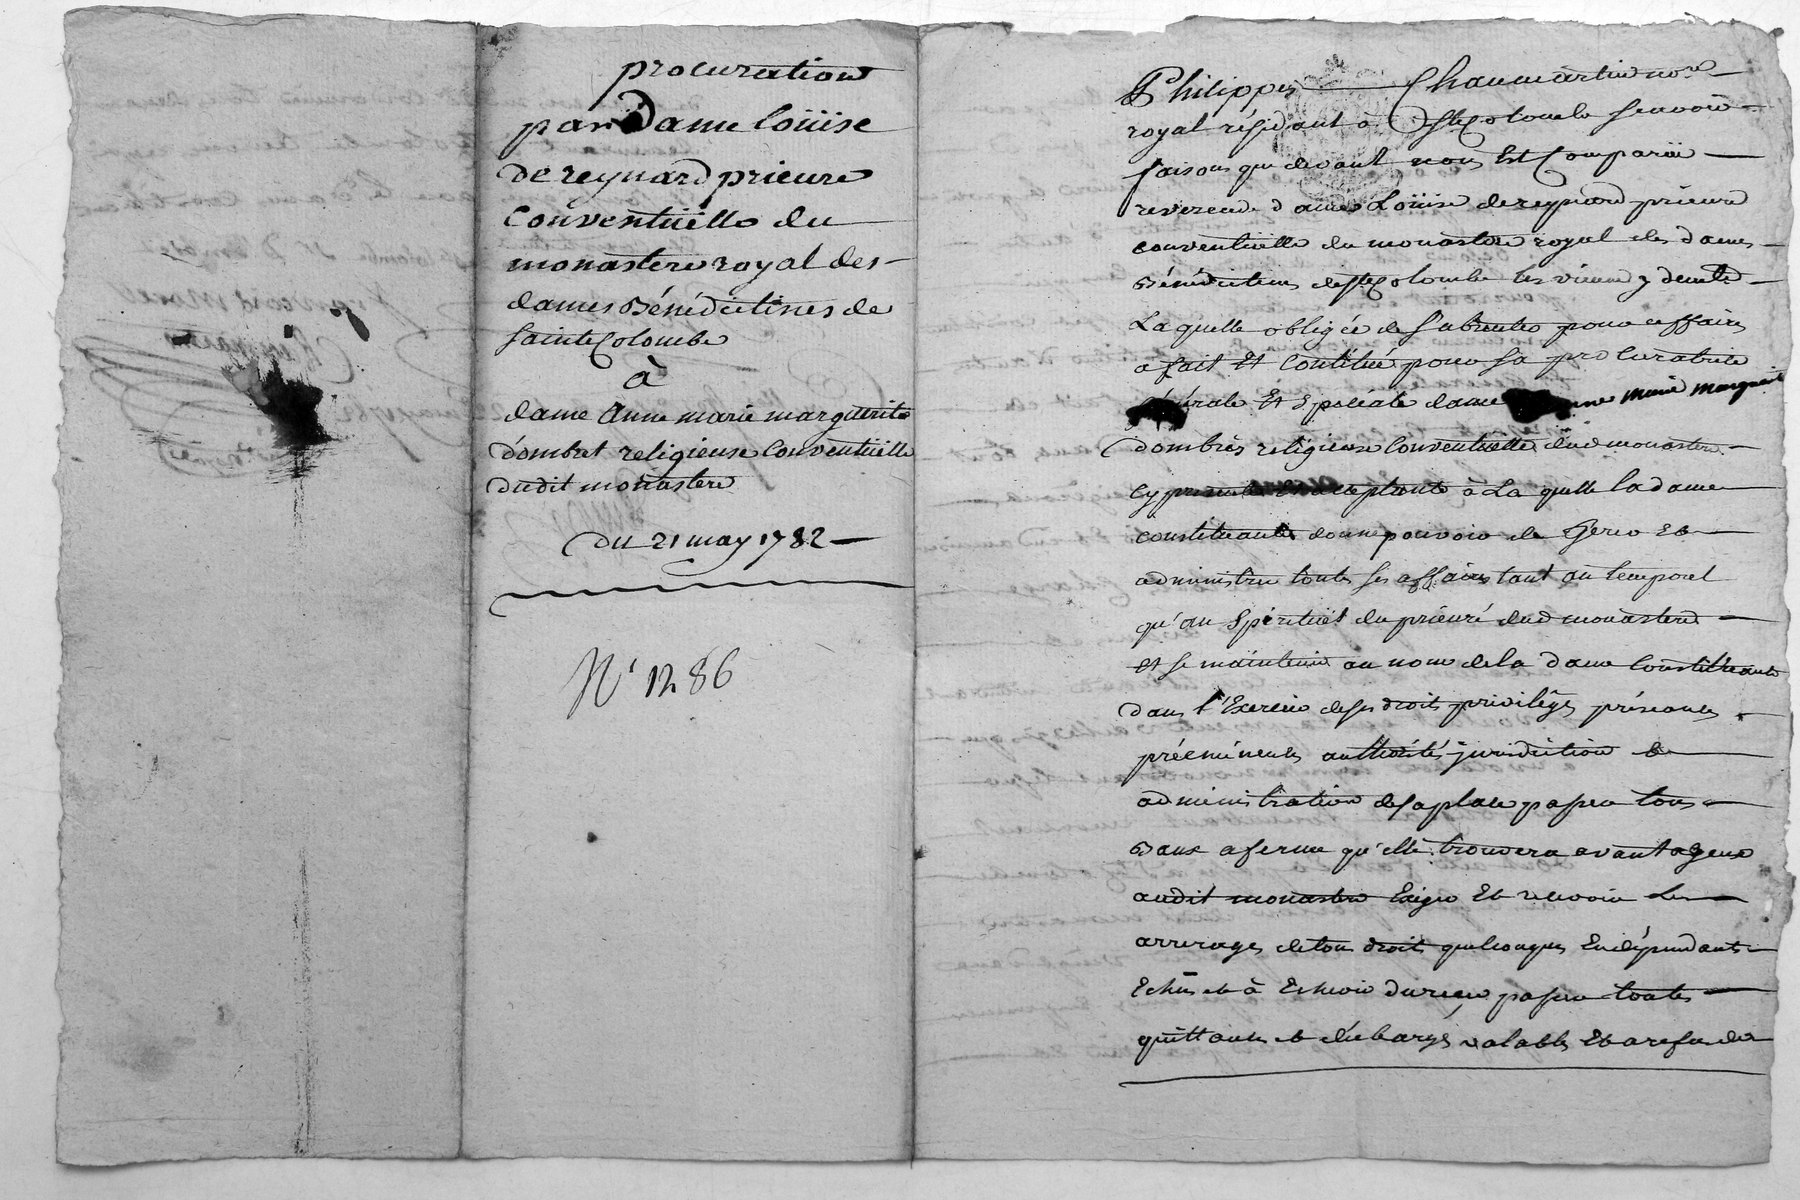 procuration
par Dame Loüise
de reynard prieure
conventüelle du
monastere royal des
dames Bénédictines de
sainte Colombe
à
dame Anne marie marguerite
d'ombret religieuse Conventüelle
dudit monastere
Du 21 may 1782
N° 1286
Philippes Chaumartin nore
royal résidant a Ste Colombe sçavoir
faisons que devant nous Est Comparüe
reverende dame Loüise de reynard prieure
conventuelle du monastere royal des dames
Bénédictines de Ste Colombe les vienne y demte
Laquelle obligée de s'absenter pour affaires
a fait Et Constitué pour sa procuratrice
générale Et spéciale dame anne Marie Marguerite
dombrès religieuse Conventuelle dud monastere
cy présente et acceptante à La quelle la dame
constituante donne pouvoir de Gerer Et
administrer toutes ses affaires tant aü temporel
qu'au Spirituel du prieuré dud monastere
et se maintenir au nom de la dame Constituante
dans l'Exercice de ses droits privilèges préseances
prééminences authorités jurisdiction &
administration de sa place passer tous
Baux a ferme qu'elle trouvera avantageux
audit monastere Exiger Et recevoir Les
arrerages de tous droits quelconques En dépendants
Echus et à Echeoir du reçu passer toutes
quittances et décharges valables Et a refus de